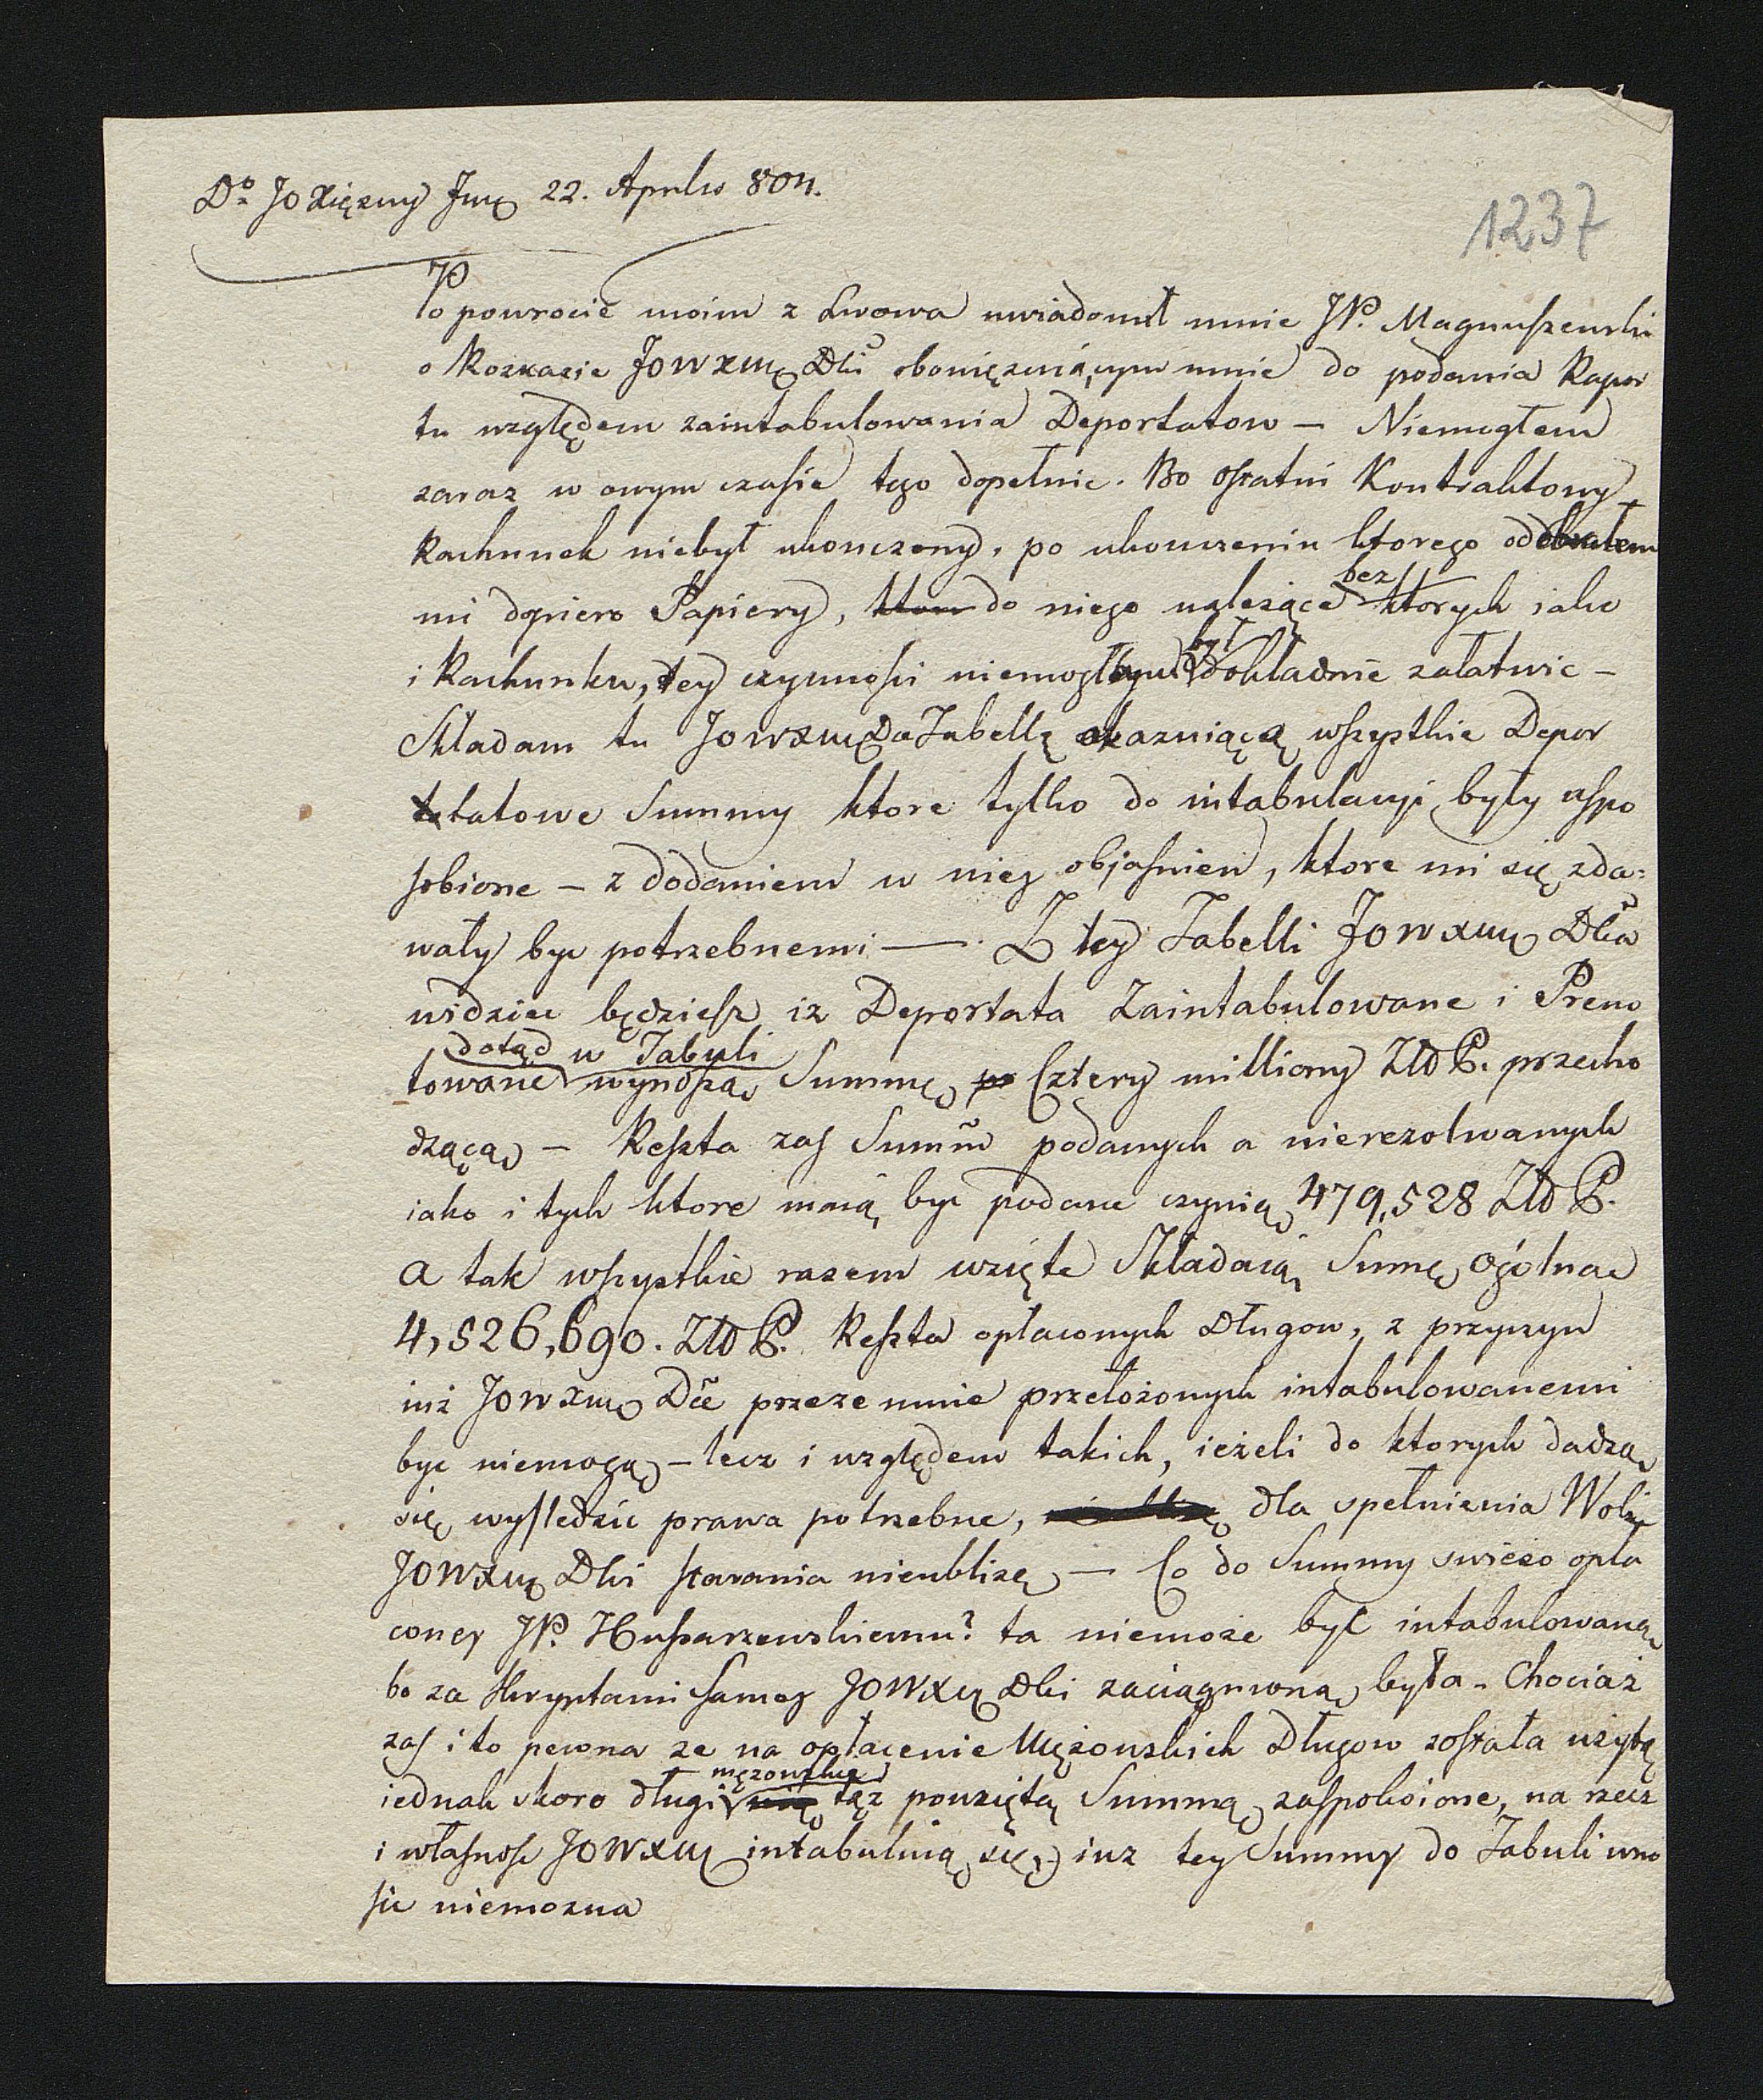 Do JO Xiężny Jmę 22. Aprilis 804.
1237
Po powrocie moim z Lwowa uwiadomił mnie JP. Magnuszewski
o Rozkazie JOWXmę Dki obowięzuiącym mnie do podania Rapor
tu względem zaintabulowania Deportatow — Niemogłem
zaraz w owym czasie tego dopełnic. Bo ostatni Kontraktowy
Rachunek niebył ukonczony, po ukonczeniu ktorego odebrałem
mi dopiero Papiery, do niego należące bez ktorych iako
i Rachunku, tey czynności niemogłbym był dokładnie załatwic —
Składam tu JOWXmę Da Tabellę okazuiącą wszystkie Depor
tatowe Summy ktore tylko do intabulacyi były uspo
sobione — z dodaniem w niey objasnien, ktore mi się zda=
wały byc potrzebnemi —. Z tey Tabelli JOWXmę Dka
widziec będziesz iz Deportata Zaintabulowane i Preno
towane dotąd w Tabuli wynoszą Summę Cztery milliony ZłoP. przecho
dzącą — Reszta zas Summ podanych a nierezolwanych
iako i tych ktore maią byc podane czynią 479,528 ZłoP.
a tak wszystkie razem wzięte Składaią Sumę ogólną
4,526,690. ZłoP. Reszta opłaconych Długow, z przyczyn
iuż JOWXmę Dce przeze mnie przełożonych intabulowanemi
byc niemogą — lecz i względem takich, ieżeli do ktorych dadzą
się wysledzic prawa potrzebne, dla spełnienia Woli
JOWXmę Dki starania nieubliżę — Co do Summy swieżo opła
coney JP. Huszarzewskiemu? ta niemoże być intabulowaną
bo za skryptami samey JOWXmę Dki zaciągnioną była – Chociaż
zas i to pewna ze na opłacenie Mężowskich Długow została użytą
iednak skoro długi mężowskie tąż powziętą Summą zaspokoione, na rzecz
i własnosc JOWXmę intabuluią się, iuz tey Summy do Tabuli wno
sic niemozna